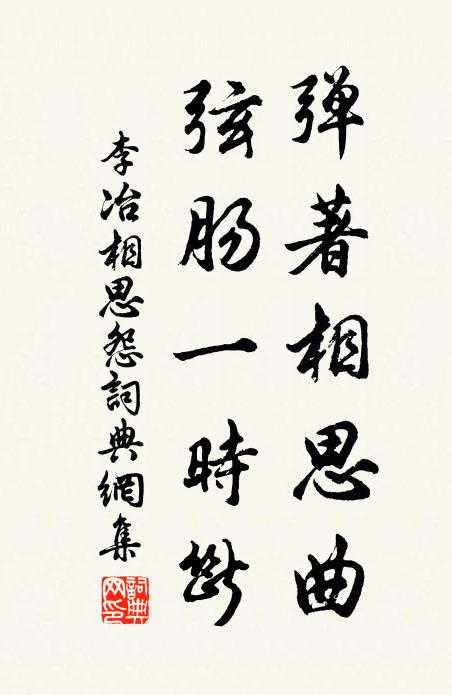 弹著相思曲
弦肠一時斷
李冶相思怨詞典網集
詞典網印